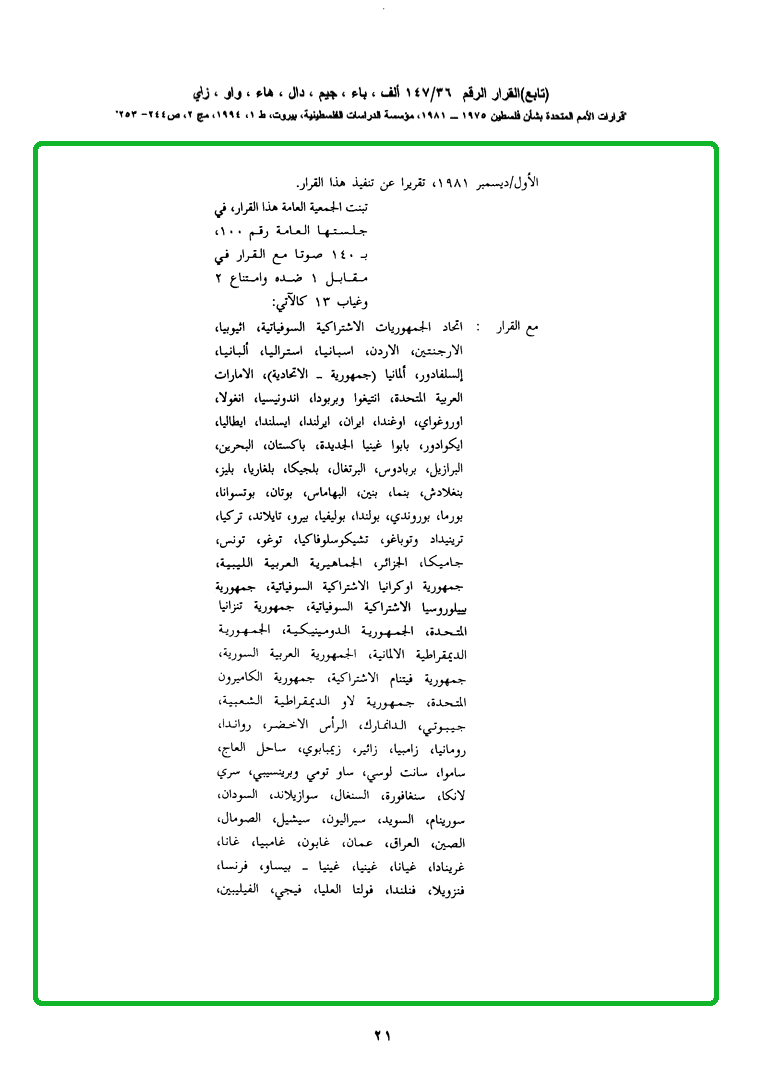 (تابع)القرار الرقم ١٤٧/٣٦ ألف ، باء ، جيم ، دال ، هاء ، واو ، زاي
"قرارات الأمم المتحدة بشأن فلسطين ١٩٧٥ – ١٩٨١، مؤسسة الدراسات الفلسطينية، بيروت، ط ١، ١٩٩٤، مج ٢، ص٢٤٤– ٢٥٣"
الأول/ديسمبر ١٩٨١، تقريرا عن تنفيذ هذا القرار.
تبنت الجمعية العامة هذا القرار، في
جلستها العامة رقم ١٠٠،
بـ ١٤٠ صوتا مع القرار في
مقابل ١ ضده وامتناع ٢
وغياب ١٣ كالآتي:
مع القرار : اتحاد الجمهوريات الاشتراكية السوفياتية، اثيوبيا،
الارجنتين، الاردن، اسبانيا، استراليا، ألبانيا،
إلسلفادور، ألمانيا (جمهورية – الاتحادية)، الامارات
العربية المتحدة، انتيغوا وبربودا، اندونيسيا، انغولا،
اوروغواي، اوغندا، ايران، ايرلندا، ايسلندا، ايطاليا،
ايكوادور، بابوا غينيا الجديدة، باكستان، البحرين،
البرازيل، بربادوس، البرتغال، بلجيكا، بلغاريا، بليز،
بنغلادش، بنما، بنين، البهاماس، بوتان، بوتسوانا،
بورما، بوروندي، بولندا، بوليفيا، بيرو، تايلاند، تركيا،
ترينيداد وتوباغو، تشيكوسلوفاكيا، توغو، تونس،
جاميكا، الجزائر، الجماهيرية العربية الليبية،
جمهورية اوكرانيا الاشتراكية السوفياتية، جمهورية
بييلوروسيا الاشتراكية السوفياتية، جمهورية تنزانيا
المتحدة، الجمهورية الدومينيكية، الجمهورية
الديمقراطية الالمانية، الجمهورية العربية السورية،
جمهورية فيتنام الاشتراكية، جمهورية الكاميرون
المتحدة، جمهورية لاو الديمقراطية الشعبية،
جيبوتي، الدانمارك، الرأس الاخضر، رواندا،
رومانيا، زامبيا، زائير، زيمبابوي، ساحل العاج،
ساموا، سانت لوسي، ساو تومي وبرينسيبي، سري
لانكا، سنغافورة، السنغال، سوازيلاند، السودان،
سورينام، السويد، سيراليون، سيشيل، الصومال،
الصين، العراق، عمان، غابون، غامبيا، غانا،
غرينادا، غيانا، غينيا، غينيا – بيساو، فرنسا،
فنزويلا، فنلندا، فولتا العليا، فيجي، الفيليبين،
٢١